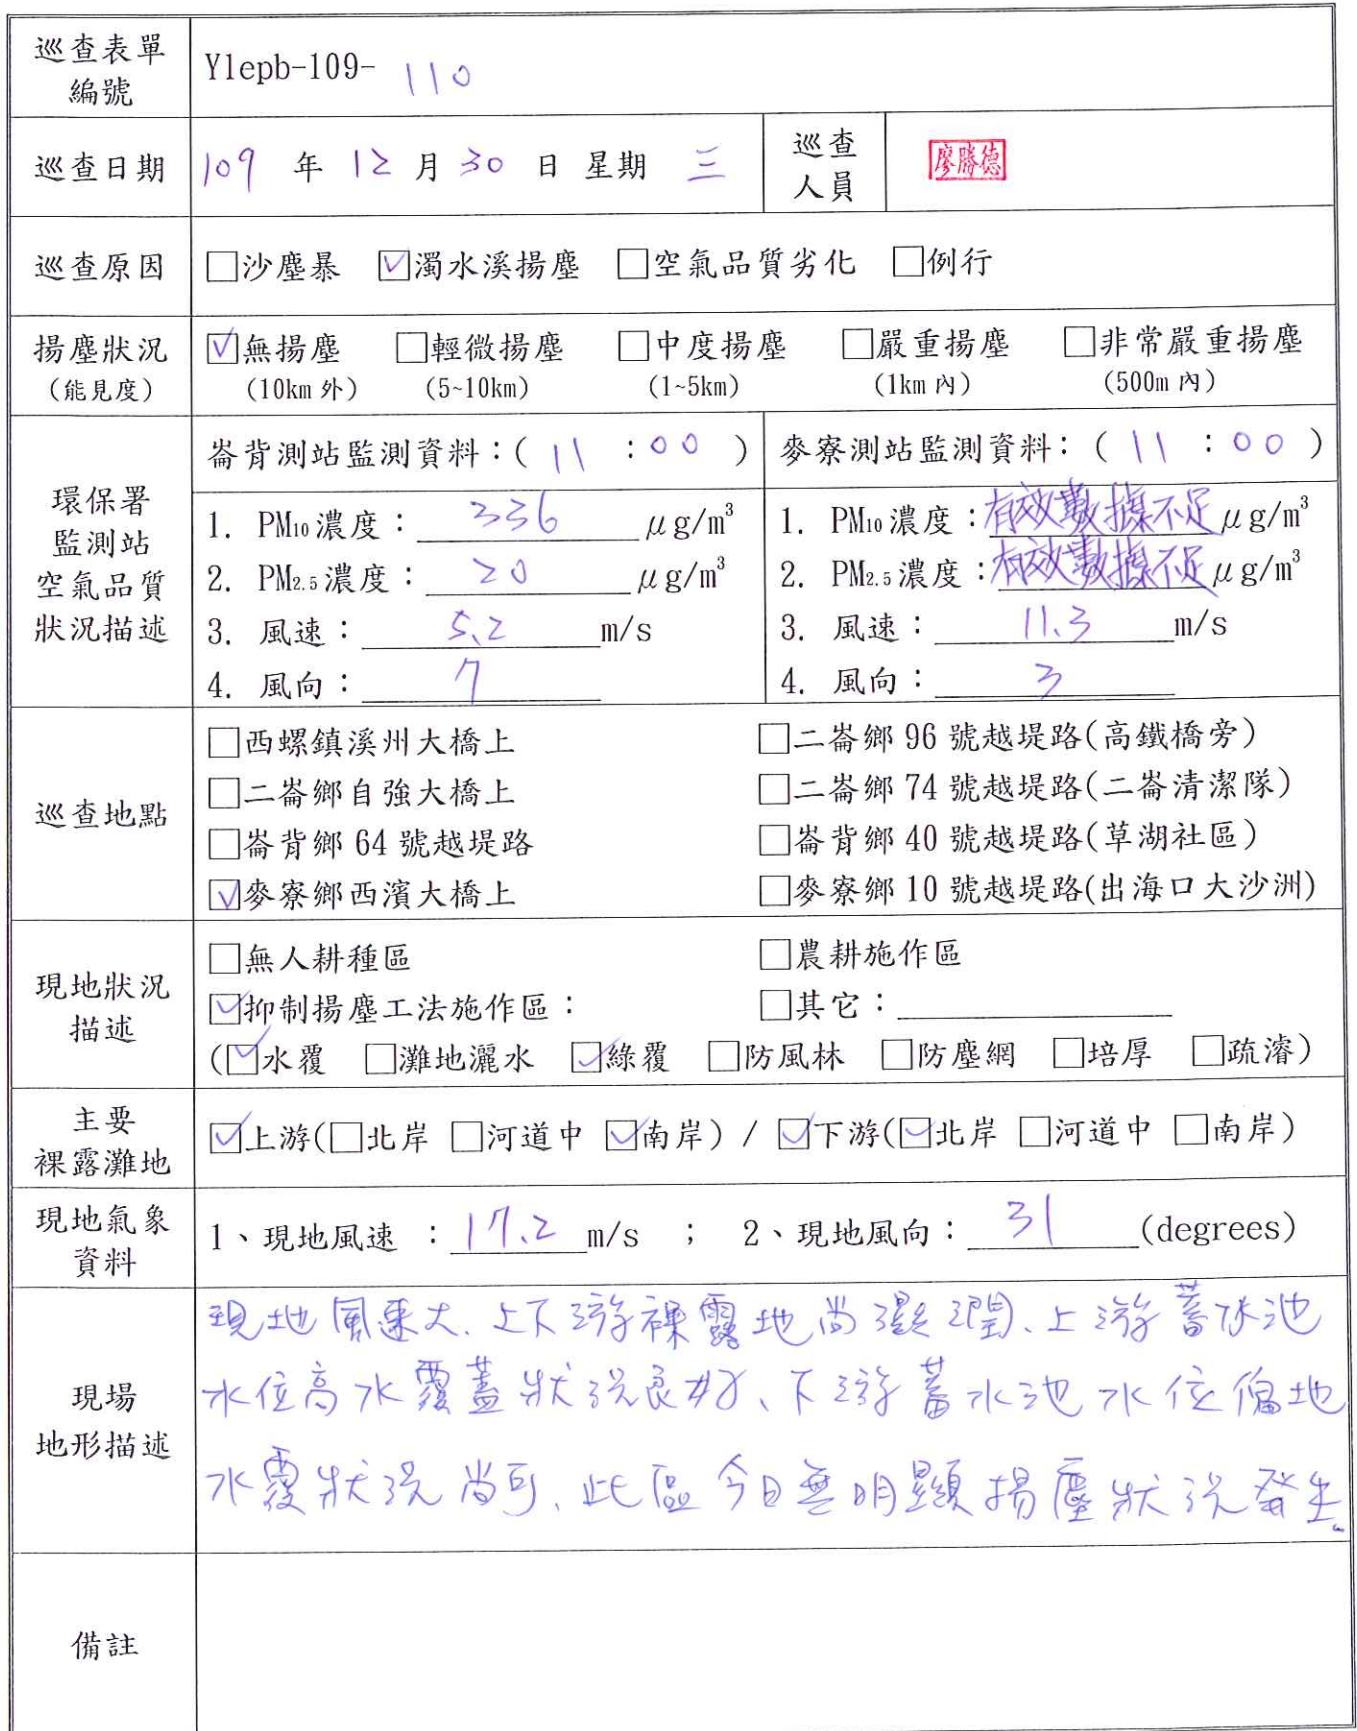 巡查表單
編號
Ylepb-109- 110
巡查日期
109 年 12 月 30 日 星期 三
巡查
人員
廖勝德
巡查原因
□沙塵暴 ☑濁水溪揚塵 □空氣品質劣化 □例行
揚塵狀況
(能見度)
☑無揚塵 □輕微揚塵 □中度揚塵 □嚴重揚塵 □非常嚴重揚塵
(10km 外) (5~10km) (1~5km) (1km 內) (500m 內)
環保署
監測站
空氣品質
狀況描述
崙背測站監測資料：( 11 : 00 )
1. PM10濃度：336 μg/m³
2. PM2.5濃度：20 μg/m³
3. 風速：5.2 m/s
4. 風向：7
麥寮測站監測資料：( 11 : 00 )
1. PM10濃度：有效數據不足 μg/m³
2. PM2.5濃度：有效數據不足 μg/m³
3. 風速：11.3 m/s
4. 風向：3
巡查地點
□西螺鎮溪州大橋上 □二崙鄉 96 號越堤路(高鐵橋旁)
□二崙鄉自強大橋上 □二崙鄉 74 號越堤路(二崙清潔隊)
□崙背鄉 64 號越堤路 □崙背鄉 40 號越堤路(草湖社區)
☑麥寮鄉西濱大橋上 □麥寮鄉 10 號越堤路(出海口大沙洲)
現地狀況
描述
□無人耕種區 □農耕施作區
☑抑制揚塵工法施作區： □其它：
(☑水覆 □灘地灑水 ☑綠覆 □防風林 □防塵網 □培厚 □疏濬)
主要
裸露灘地
☑上游(□北岸 □河道中 ☑南岸) / ☑下游(☑北岸 □河道中 □南岸)
現地氣象
資料
1、現地風速 ：17.2 m/s ； 2、現地風向：31 (degrees)
現場
地形描述
現地風速大、上下游裸露地尚濕潤、上游蓄水池
水位高水覆蓋狀況良好、下游蓄水池水位偏地
水覆狀況尚可、此區今日無明顯揚塵狀況發生。
備註